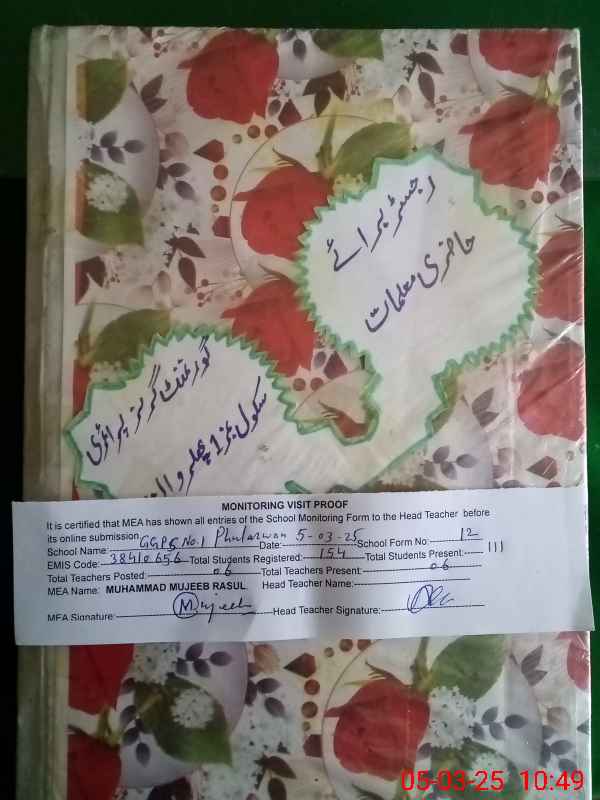 رجسٹر برائے
حاضری معلمات
گورنمنٹ گرلز پرائمری
سکول نمبر 1 پھلروان
MONITORING VISIT PROOF
It is certified that MEA has shown all entries of the School Monitoring Form to the Head Teacher before
its online submission
School Name: GGPS No.1 Phularwan Date: 5-03-25 School Form No: 12
EMIS Code: 38410656 Total Students Registered: 154 Total Students Present: 111
Total Teachers Posted: 06 Total Teachers Present: 06
MEA Name: MUHAMMAD MUJEEB RASUL Head Teacher Name:
MEA Signature: Mujeeb Head Teacher Signature:
05-03-25 10:49